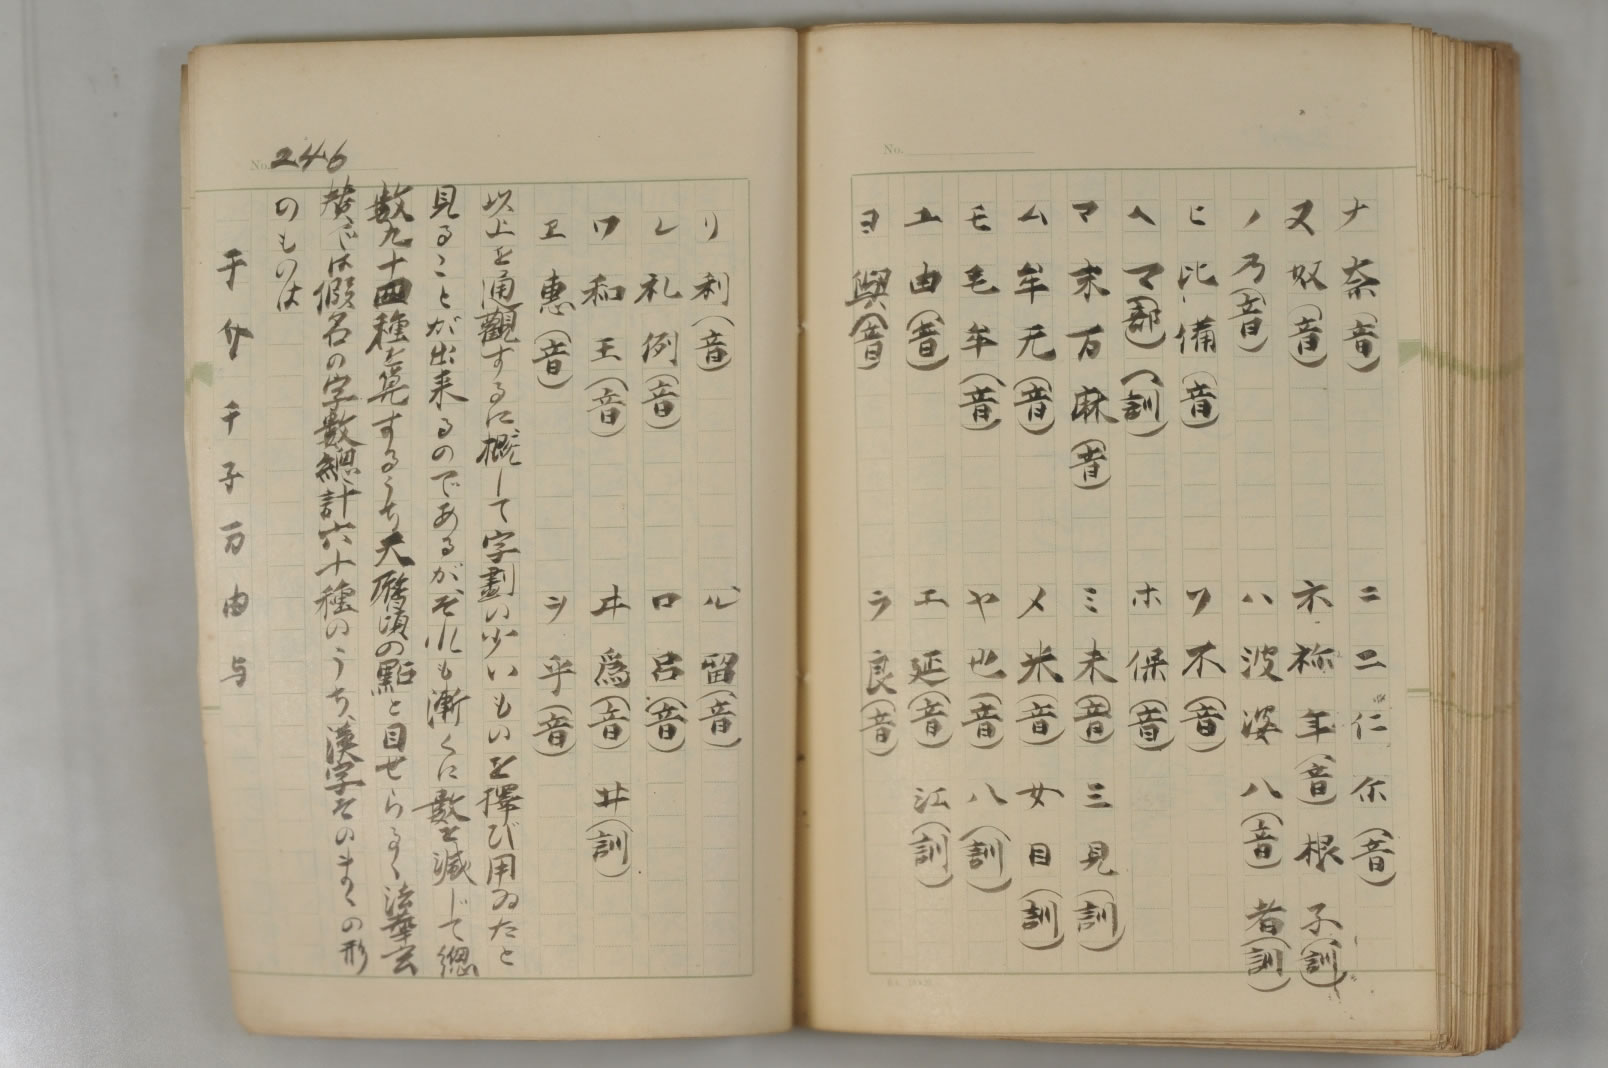 No.
ナ 奈(音) ニ 二 仁 尓(音)
ヌ 奴(音) ネ 祢 年(音) 根 子(訓)
ノ 乃(音) ハ 波 婆 八(音) 者(訓)
ヒ 比 備(音) フ 不(音)
ヘ マ(部)(訓) ホ 保(音)
マ 末 万 麻(音) ミ 未(音) 三 見(訓)
ム 牟 无(音) メ 米(音) 女 目(訓)
モ 毛 牟(音) ヤ 也(音) 八(訓)
ユ 由(音) エ 延(音) 江(訓)
ヨ 與(音) ラ 良(音)
No. 246
リ 利(音) ル 留(音)
レ 礼 例(音) ロ 呂(音)
ワ 和 王(音) ヰ 爲(音) 井(訓)
ヱ 惠(音) ヲ 乎(音)
以上を通觀するに概して字劃の少いものを擇び用ゐたと
見ることが出来るのであるがそれも漸くに數を減じて總
數九十四種を算するうち天暦頃の點と目せらるゝ法華玄
賛では假名の字數總計六十種のうち、漢字そのまゝの形
のものは
干 介 千 子 万 由 与